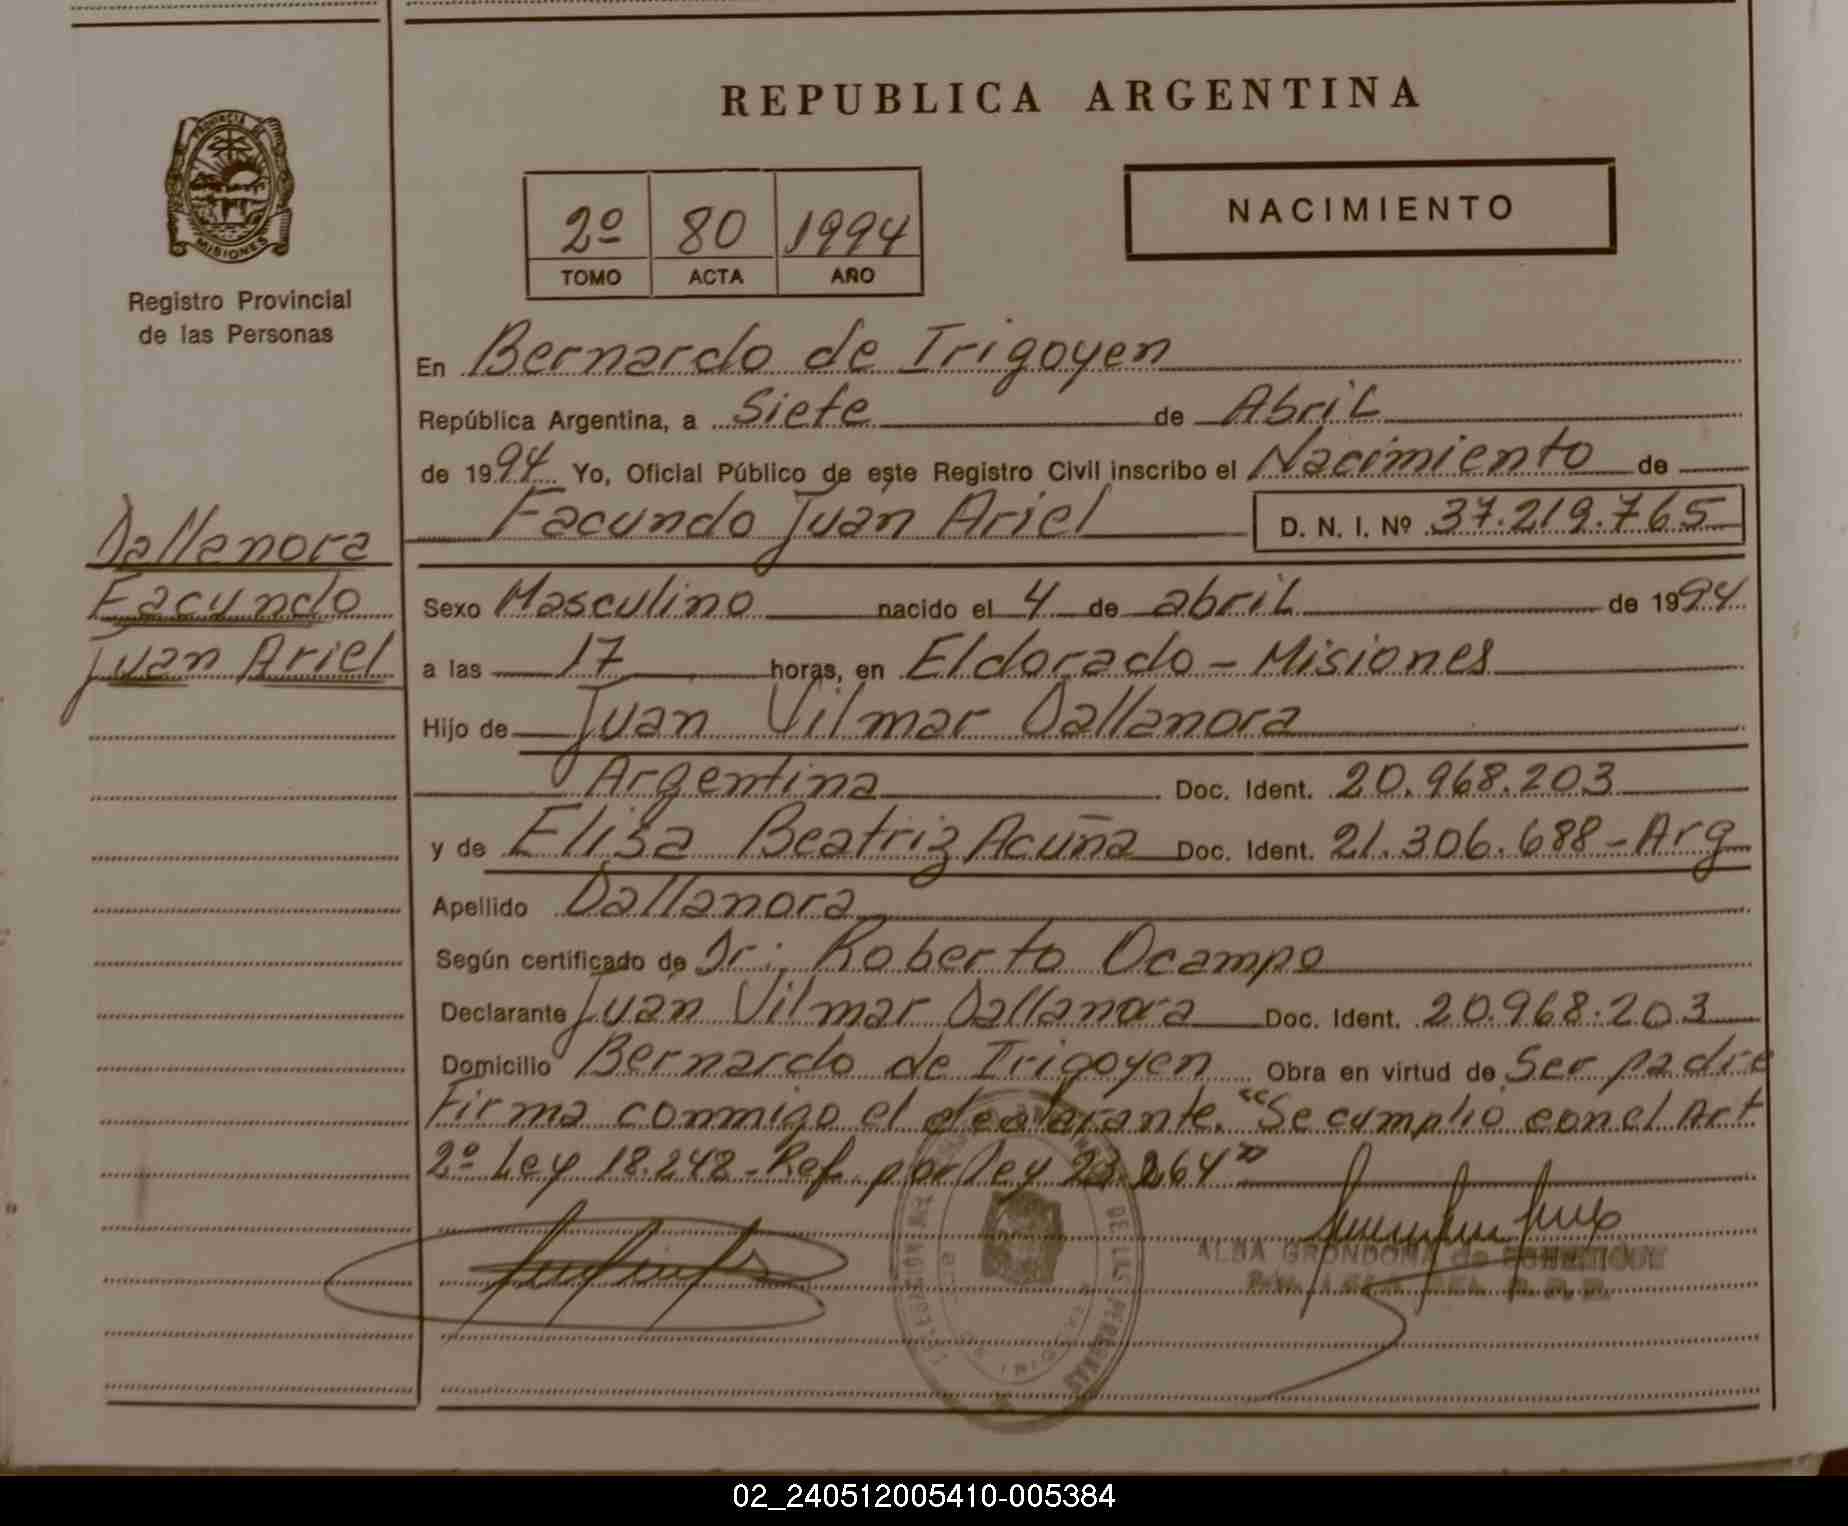 REPUBLICA ARGENTINA
PROVINCIA DE
MISIONES
Registro Provincial
de las Personas
2º 80 1994
TOMO ACTA AÑO
NACIMIENTO
En Bernardo de Irigoyen
República Argentina, a Siete de Abril
de 1994 Yo, Oficial Público de este Registro Civil inscribo el Nacimiento de
Facundo Juan Ariel D. N. I. Nº 37.219.765
Dallanora
Facundo
Juan Ariel
Sexo Masculino nacido el 4 de abril de 1994
a las 17 horas, en Eldorado - Misiones
Hijo de Juan Vilmar Dallanora
Argentina Doc. Ident. 20.968.203
y de Elisa Beatriz Acuña Doc. Ident. 21.306.688 - Arg
Apellido Dallanora
Según certificado de Dr: Roberto Ocampo
Declarante Juan Vilmar Dallanora Doc. Ident. 20.968.203
Domicilio Bernardo de Irigoyen Obra en virtud de Ser padre
Firma conmigo el declarante. "Se cumplió con el Art
2º Ley 18.248 - Ref. por ley 23.264"
ALBA GRONDONA de
DE LAS PERSONAS
02_240512005410-005384